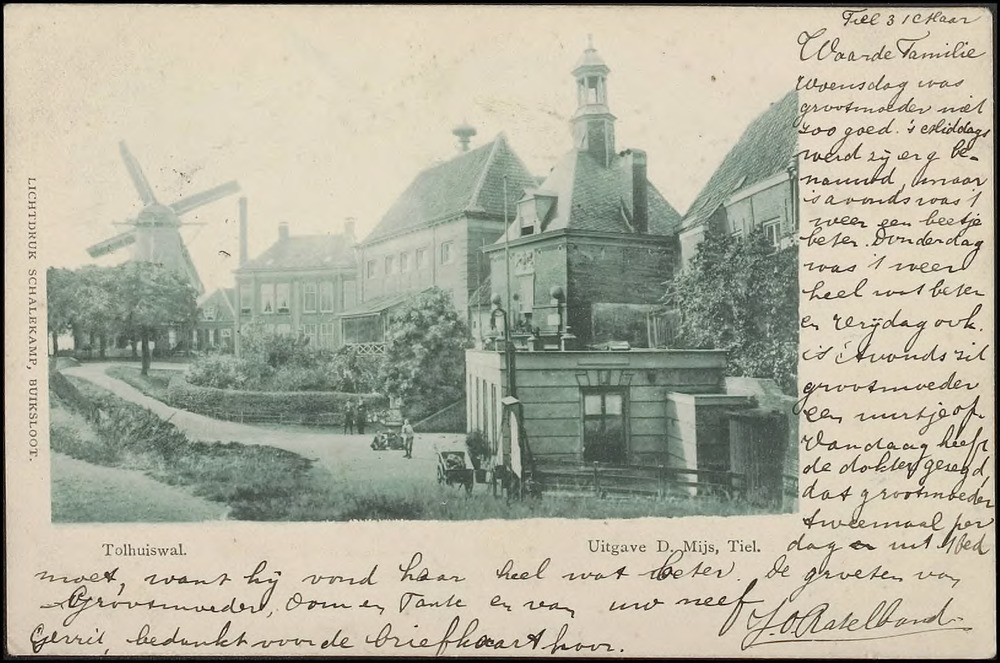 Tiel 31 Maar
Waarde Familie
Woensdag was
grootmoeder niet
zoo goed. 's Middags
werd zij erg be-
nauwd, maar
's avonds was 't
weer een beetje
beter. Donderdag
was 't weer
heel wat beter
en Vrijdag ook.
's Avonds zit
grootmoeder
een uurtje op.
Vandaag heeft
de dokter gezegd,
dat grootmoeder
tweemaal per
dag uit 't bed
moet, want hij vond haar heel wat beter. De groeten van
Grootmoeder, Oom en Tante en van uw neef
Gerrit, bedankt voor de briefkaart hoor.
J. O. Ratelband
LICHTDRUK SCHALEKAMP, BUIKSLOOT.
Tolhuiswal.
Uitgave D. Mijs, Tiel.